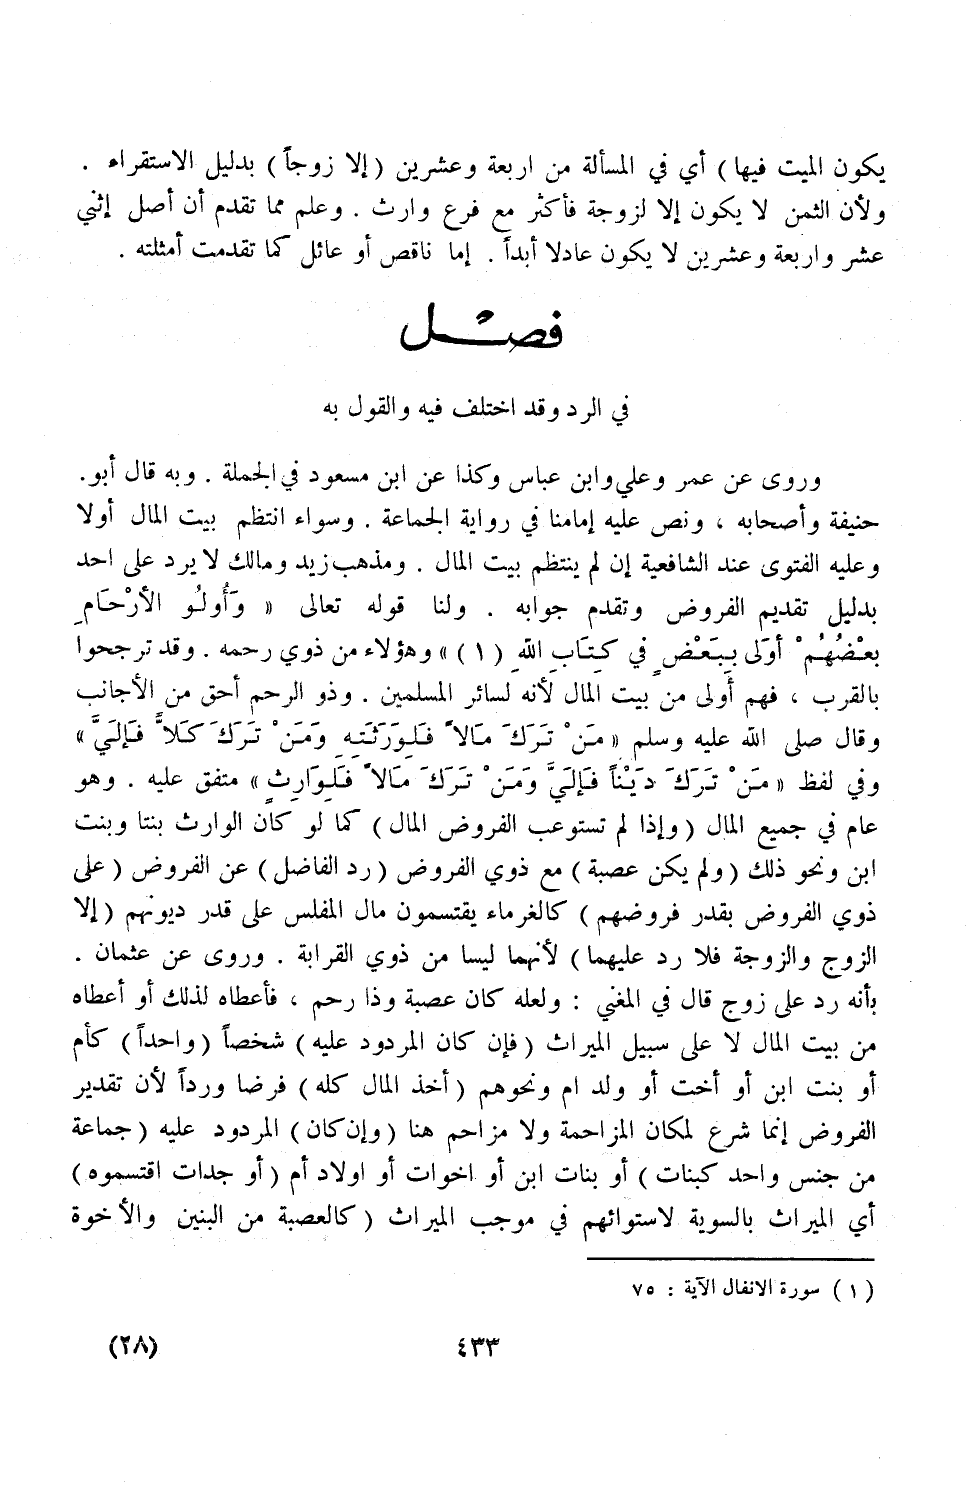 يكون الميت فيها ) أي في المسألة من اربعة وعشرين ( إلا زوجاً ) بدليل الاستقراء .
ولأن الثمن لا يكون إلا لزوجة فأكثر مع فرع وارث . وعلم مما تقدم أن أصل إثني
عشر واربعة وعشرين لا يكون عادلا أبداً . إما ناقص أو عائل كما تقدمت أمثلته .
فصل
في الرد وقد اختلف فيه والقول به
وروى عن عمر وعلي وابن عباس وكذا عن ابن مسعود في الجملة . وبه قال أبو.
حنيفة وأصحابه ، ونص عليه إمامنا في رواية الجماعة . وسواء انتظم بيت المال أولا
وعليه الفتوى عند الشافعية إن لم ينتظم بيت المال . ومذهب زيد ومالك لا يرد على احد
بدليل تقديم الفروض وتقدم جوابه . ولنا قوله تعالى « وَأُولُو الأرْحَامِ
بعْضُهُمْ أوَلى بِبَعْضٍ في كِتَابِ اللهِ ( ١ ) » وهؤلاء من ذوي رحمه . وقد ترجحوا
بالقرب ، فهم أولى من بيت المال لأنه لسائر المسلمين . وذو الرحم أحق من الأجانب
وقال صلى الله عليه وسلم « مَنْ تَرَكَ مَالاً فَلِوَرَثَتِهِ وَمَنْ تَرَكَ كَلاًّ فَإلَيَّ »
وفي لفظ « مَنْ تَرَكَ دَيْناً فَإلَيَّ وَمَنْ تَرَكَ مَالاً فَلِوَارِثٍ » متفق عليه . وهو
عام في جميع المال ( وإذا لم تستوعب الفروض المال ) كما لو كان الوارث بنتا وبنت
ابن ونحو ذلك ( ولم يكن عصبة ) مع ذوي الفروض ( رد الفاضل ) عن الفروض ( على
ذوي الفروض بقدر فروضهم ) كالغرماء يقتسمون مال المفلس على قدر ديونهم ( إلا
الزوج والزوجة فلا رد عليهما ) لأنهما ليسا من ذوي القرابة . وروى عن عثمان .
بأنه رد على زوج قال في المغني : ولعله كان عصبة وذا رحم ، فأعطاه لذلك أو أعطاه
من بيت المال لا على سبيل الميراث ( فإن كان المردود عليه ) شخصاً ( واحداً ) كأم
أو بنت ابن أو أخت أو ولد ام ونحوهم ( أخذ المال كله ) فرضا ورداً لأن تقدير
الفروض إنما شرع لمكان المزاحمة ولا مزاحم هنا ( وإن كان ) المردود عليه ( جماعة
من جنس واحد كبنات ) أو بنات ابن أو اخوات أو اولاد أم ( أو جدات اقتسموه )
أي الميراث بالسوية لاستوائهم في موجب الميراث ( كالعصبة من البنين والأخوة
( ١ ) سورة الانفال الآية : ٧٥
٤٣٣
(٢٨)